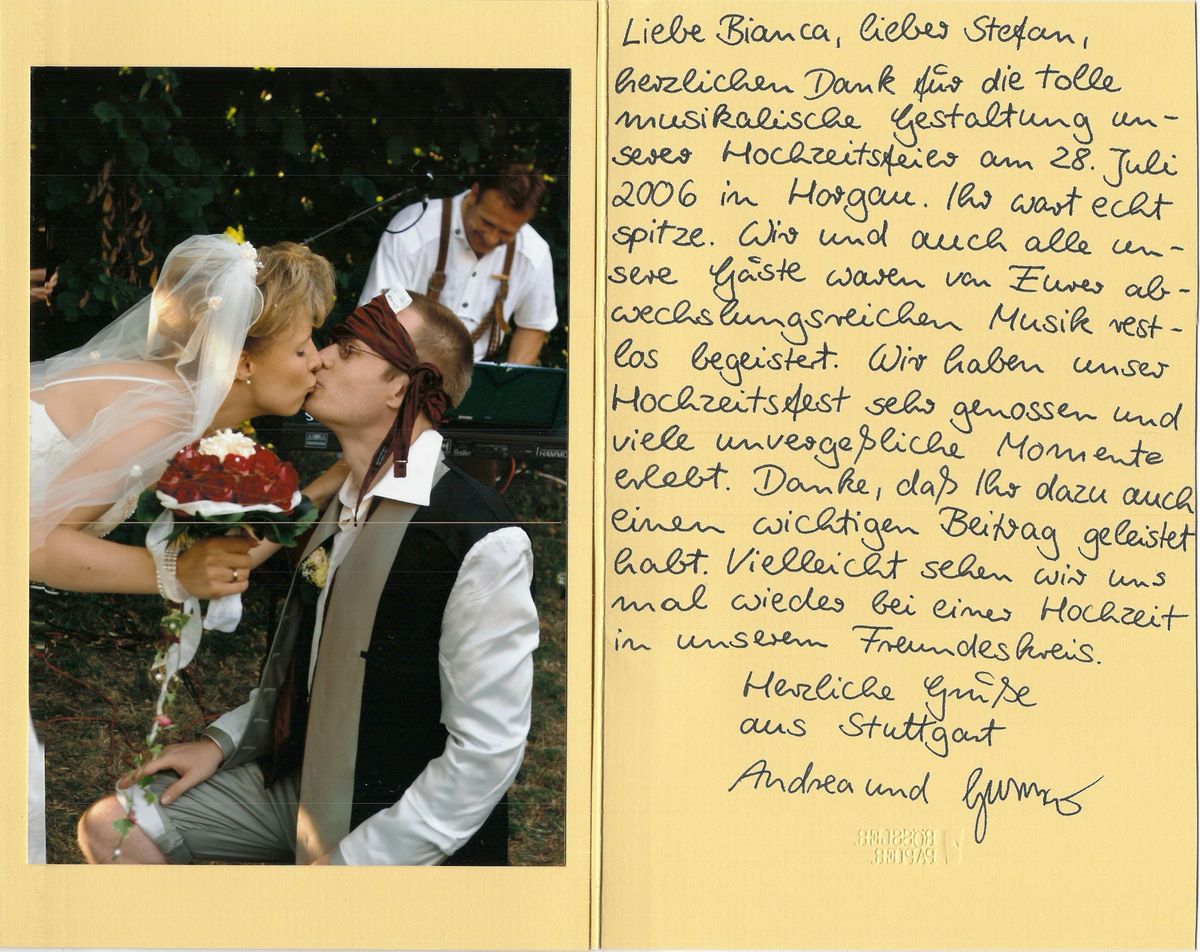 Liebe Bianca, lieber Stefan,
herzlichen Dank für die tolle
musikalische Gestaltung un-
serer Hochzeitsfeier am 28. Juli
2006 in Horgau. Ihr wart echt
spitze. Wir und auch alle un-
sere Gäste waren von Eurer ab-
wechslungsreichen Musik rest-
los begeistert. Wir haben unser
Hochzeitsfest sehr genossen und
viele unvergeßliche Momente
erlebt. Danke, daß Ihr dazu auch
einen wichtigen Beitrag geleistet
habt. Vielleicht sehen wir uns
mal wieder bei einer Hochzeit
in unserem Freundeskreis.
Herzliche Grüße
aus Stuttgart
Andrea und
RÖSSLER
PAPIER
HAMMO